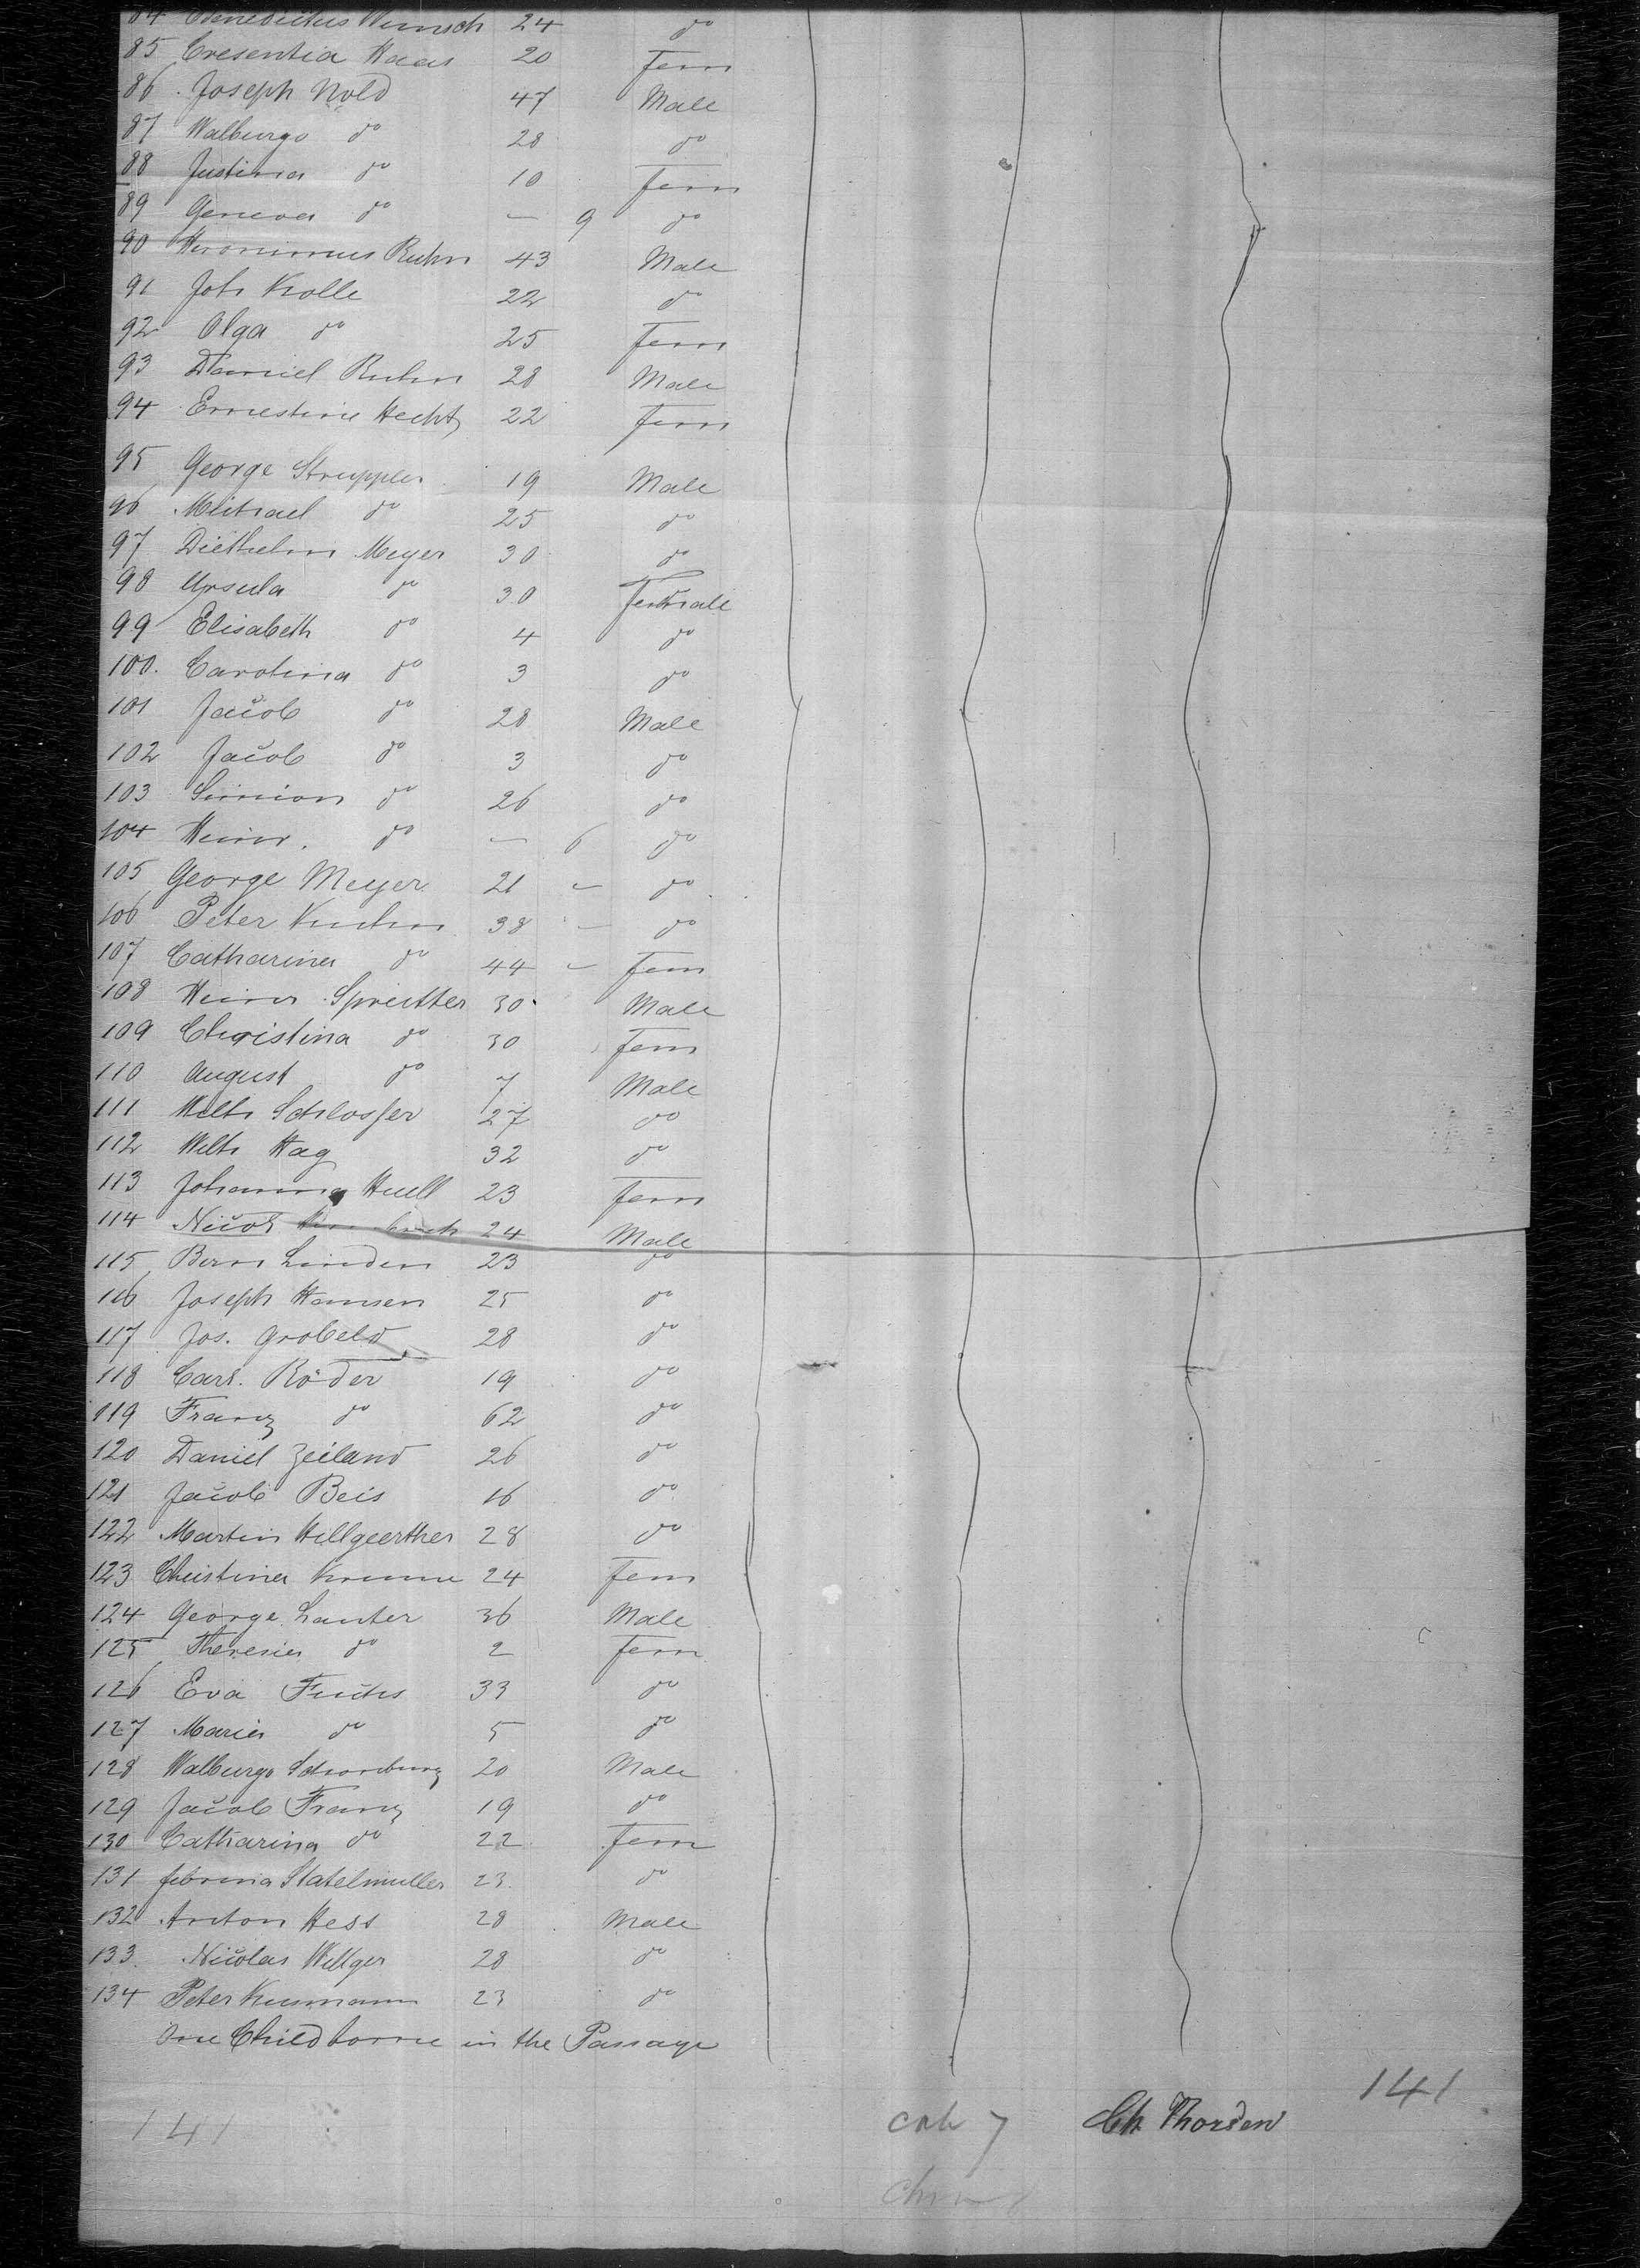 84 Benedictus Wunsch 24 do
85 Cresentia Haas 20 Fem
86 Joseph Nold 47 Male
87 Walburga do 28 do
88 Justina do 10 Fem
89 Geneva do — 9 do
90 Heronimus Ruhm 43 Male
91 Joh Krolle 22 do
92 Olga do 25 Fem
93 Daniel Ruhm 28 Male
94 Ernestine Hecht 22 Fem
95 George Struppler 19 Male
96 Michael do 25 do
97 Diethelm Meyer 30 do
98 Ursula do 30 Female
99 Elisabeth do 4 do
100. Carolina do 3 do
101 Jacob do 28 Male
102 Jacob do 3 do
103 Simion do 26 do
104 Heinr. do — 6 do
105 George Meyer 21 — do
106 Peter Kuhn 38 — do
107 Catharina do 44 — Fem
108 Heinr Spreitter 30 Male
109 Christina do 30 Fem
110 August do 7 Male
111 Wilh Schlosser 27 do
112 Wilh Hag 32 do
113 Johanna Huell 23 Fem
114 Nicol 24 Male
115 Bern Linden 23 do
116 Joseph Hansen 25 do
117 Jos. Grobeld 28 do
118 Carl. Röder 19 do
119 Franz do 62 do
120 Daniel Zeiland 26 do
121 Jacob Beis 16 do
122 Martin Hellgeerther 28 do
123 Christina Krumm 24 Fem
124 George Lauter 36 Male
125 Theresia do 2 Fem
126 Eva Fuchs 33 do
127 Maria do 5 do
128 Walburga Schornburg 20 Male
129 Jacob Franz 19 do
130 Catharina do 22 Fem
131 Statelmuller 23 do
132 Anton Hess 28 Male
133. Nicolas Willger 28 do
134 Peter Kusmann 23 do
One Child borne in the Passage
141
141 7 Ch. Thorden